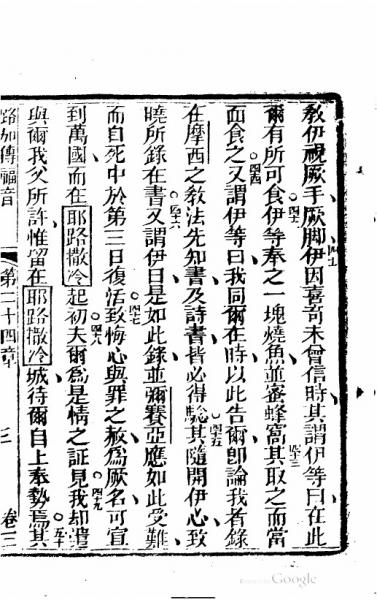 教伊視厥手厥脚伊因喜奇未曾信時其謂伊等曰在此
爾有所可食伊等奉之一塊燒魚並蜜蜂窩其取之而當
面食之又謂伊等曰我同爾在時以此告爾卽論我者錄
在摩西之敎法先知書及詩書皆必得驗其隨開伊心致
曉所錄在書又謂伊曰是如此錄並彌賽亞應如此受難
而自死中於第三日復活致悔心與罪之赦爲厥名可宣
到萬國而在耶路撒冷起初夫爾爲是情之証見我却遣
與爾我父所許惟留在耶路撒冷城待爾自上奉勢焉其
路加傳福音 第二十四章 三 卷三
Google